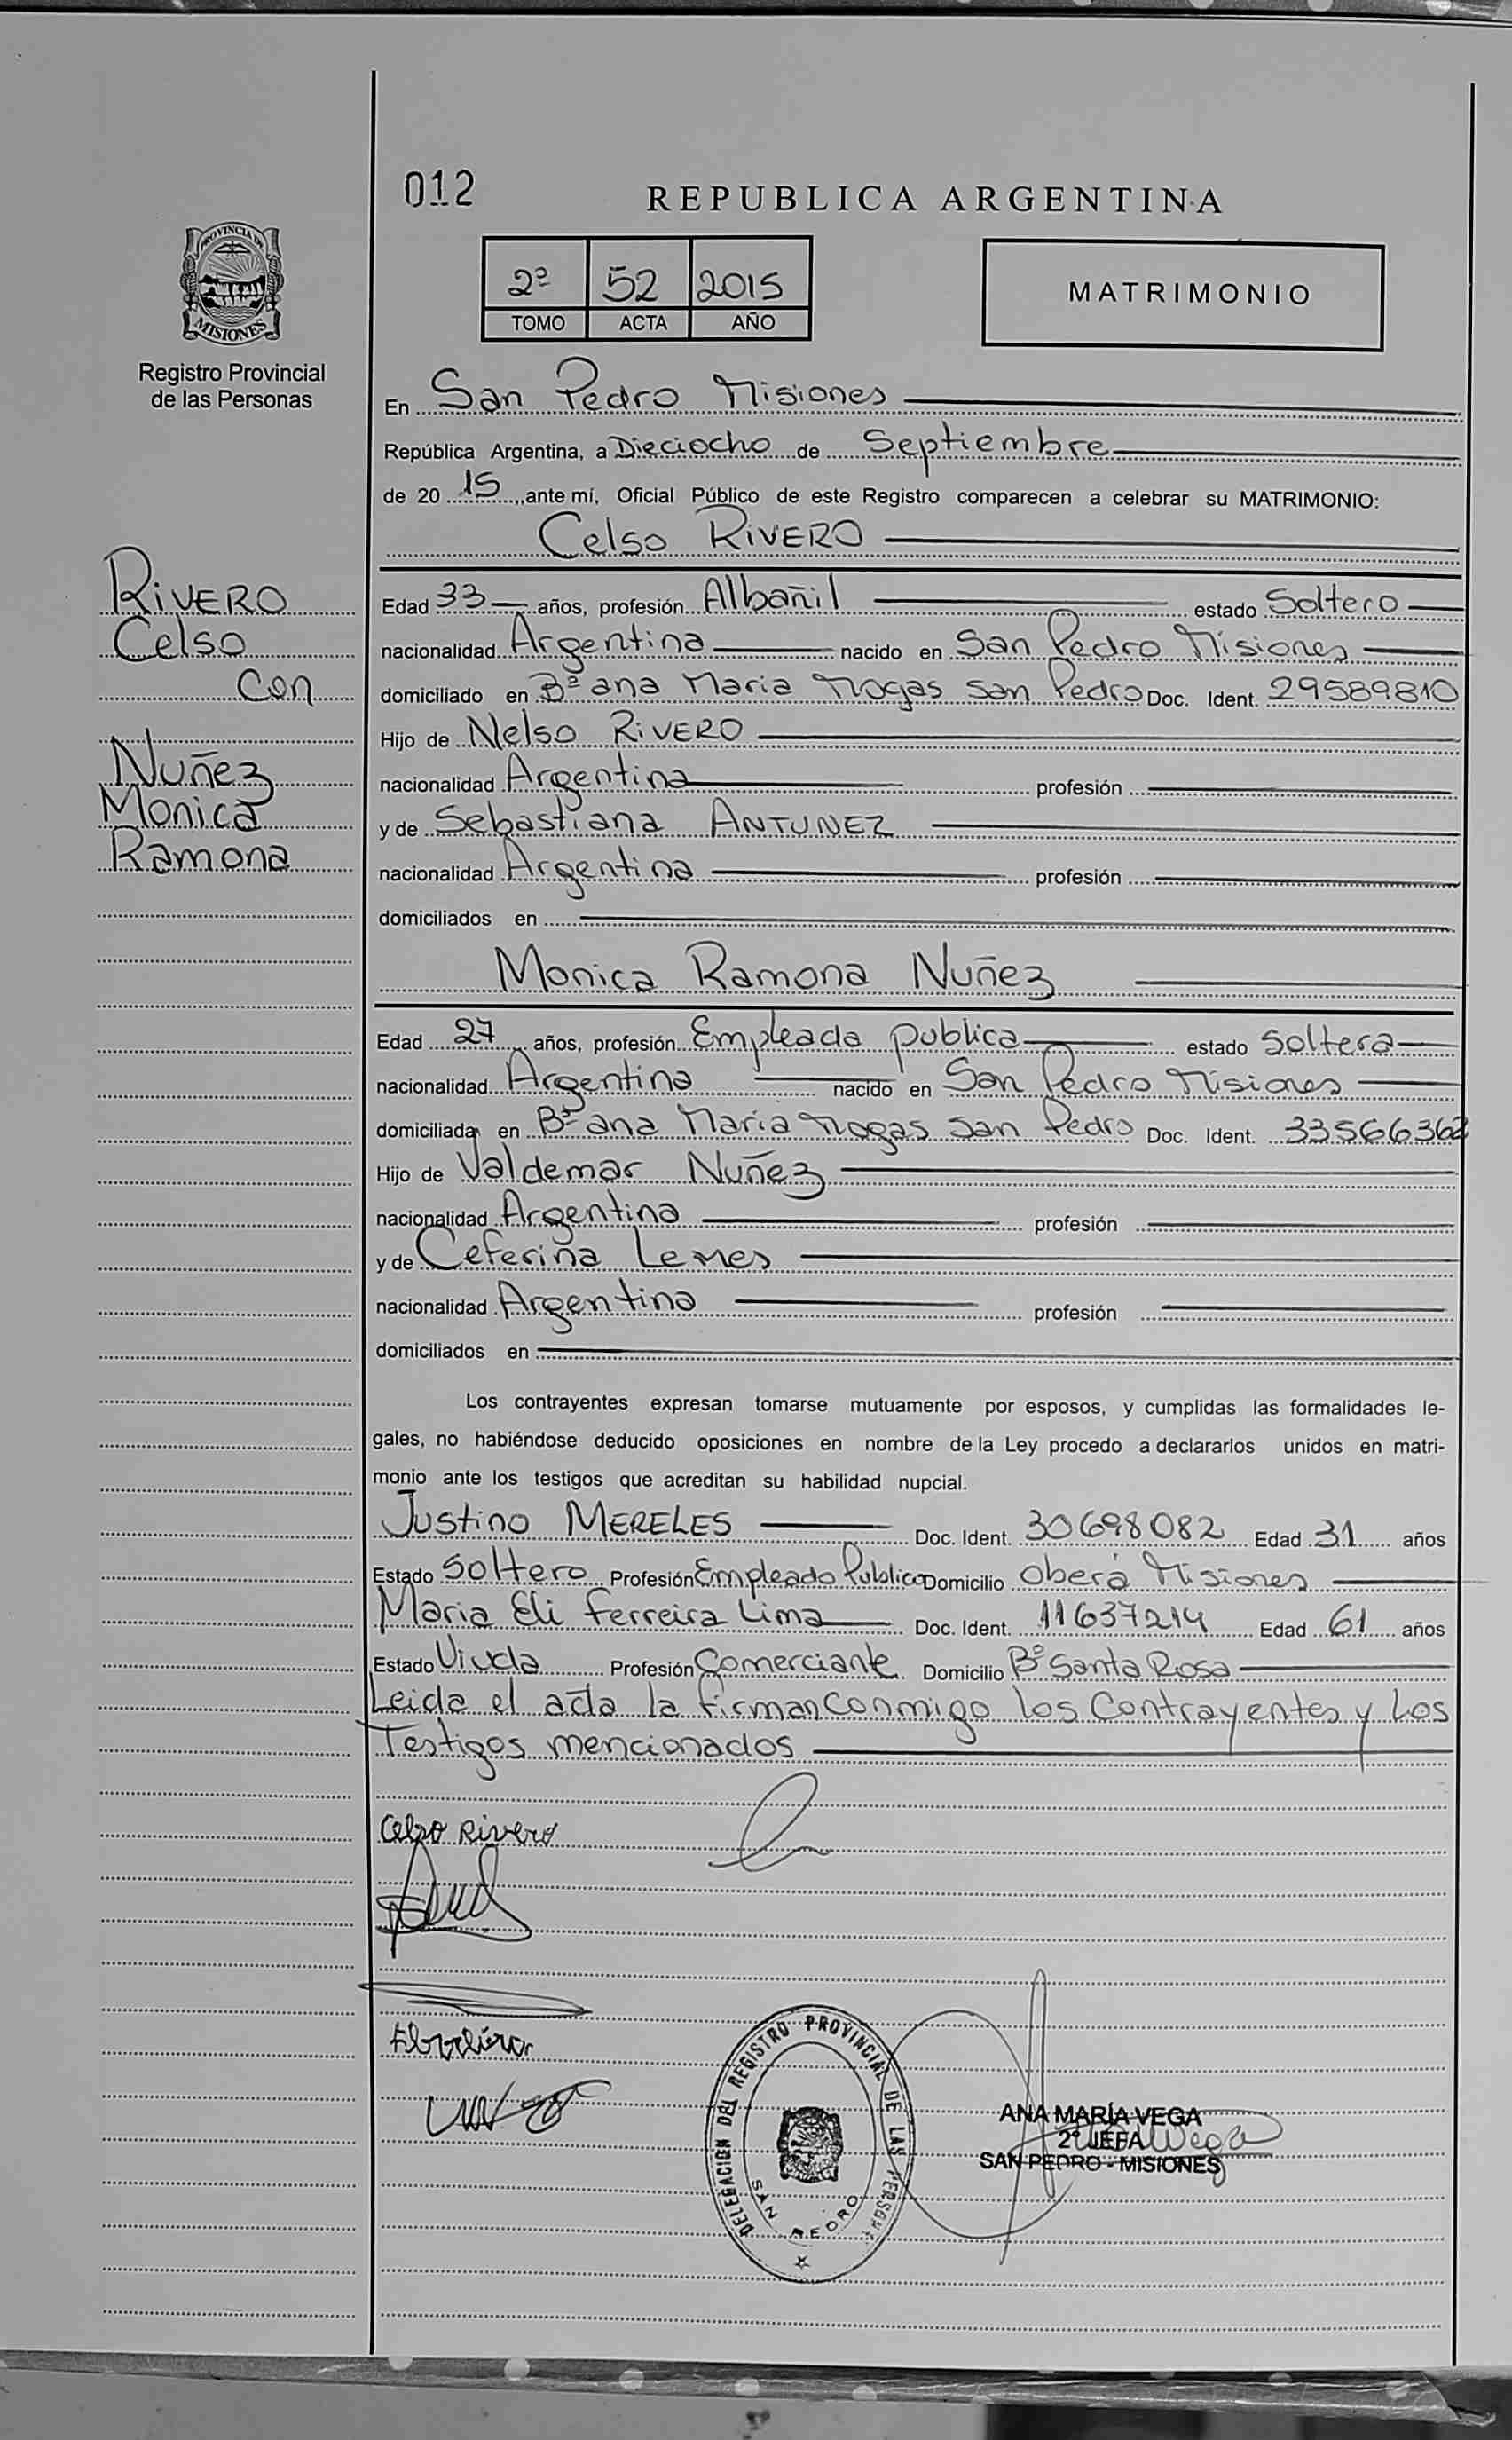 012
REPUBLICA ARGENTINA
PROVINCIA DE
MISIONES
Registro Provincial
de las Personas
2º 52 2015
TOMO ACTA AÑO
MATRIMONIO
En San Pedro Misiones
República Argentina, a Dieciocho de Septiembre
de 20 15, ante mí, Oficial Público de este Registro comparecen a celebrar su MATRIMONIO:
Celso RIVERO
RIVERO
Celso
con
Nuñez
Monica
Ramona
Edad 33 años, profesión Albañil estado Soltero
nacionalidad Argentina nacido en San Pedro Misiones
domiciliado en Bº ana Maria Mogas San Pedro Doc. Ident. 29589810
Hijo de Nelso RIVERO
nacionalidad Argentina profesión
y de Sebastiana ANTUNEZ
nacionalidad Argentina profesión
domiciliados en
Monica Ramona Nuñez
Edad 27 años, profesión Empleada publica estado Soltera
nacionalidad Argentina nacido en San Pedro Misiones
domiciliada en Bº ana Maria Mogas San Pedro Doc. Ident.
Hijo de Valdemar Nuñez
nacionalidad Argentina profesión
y de Ceferina Lemes
nacionalidad Argentina profesión
domiciliados en
Los contrayentes expresan tomarse mutuamente por esposos, y cumplidas las formalidades le-
gales, no habiéndose deducido oposiciones en nombre de la Ley procedo a declararlos unidos en matri-
monio ante los testigos que acreditan su habilidad nupcial.
Justino MERELES Doc. Ident. 30698082 Edad 31 años
Estado Soltero Profesión Empleado Publico Domicilio Oberá Misiones
Maria Eli Ferreira Lima Doc. Ident. 11637214 Edad 61 años
Estado Viuda Profesión Comerciante Domicilio Bº Santa Rosa
Leida el acta la firman conmigo los Contrayentes y Los
Testigos mencionados
Celso Rivero
DELEGACION DEL REGISTRO PROVINCIAL DE LAS PERSONAS
SAN PEDRO
ANA MARÍA VEGA
2º JEFA
SAN PEDRO - MISIONES